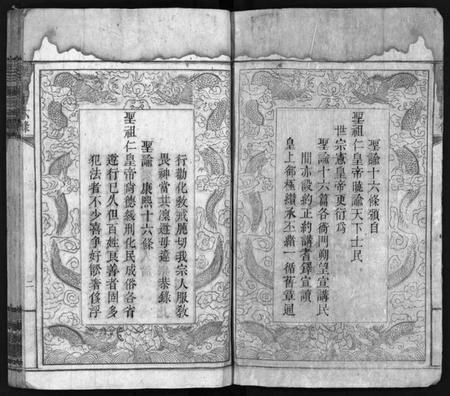 聖諭十六條頒自
聖祖仁皇帝曉諭天下士民
世宗憲皇帝更衍為
聖諭十六篇各衙門朔望宣講民
間亦設約正約講者鐸宣讀
皇上御極纘承丕緒一循舊章遇
行勸化敎戒肫切我宗人服敎
畏神當共凜遵毋違 恭錄
聖諭 康熙十六條
聖祖仁皇帝尚德緩刑化民成俗各省
遵行已久但百姓良善者固多
犯法者不少喜爭好訟奢侈浮